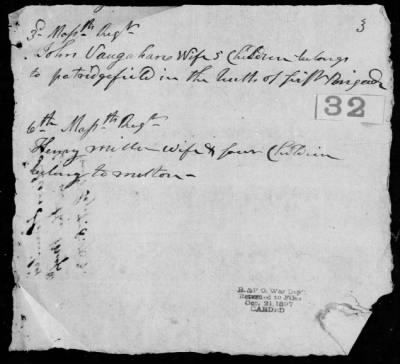 3
3d Masstts Regt
John Vaugahans Wife 5 Children belongs
to patridgefield in the of first Brigade
32
6th Masstts Regt
Henry miller wife & four Children
belong to melton -
R. & P. O. War Dep't
Returned to Files
Oct. 21, 1897
CARDED